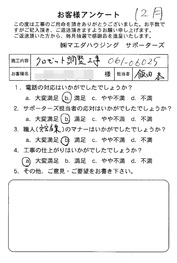 お客様アンケート 12月
この度は工事のご用命を頂きありがとうございます。お手数で
すがご記入頂き、ご返送頂きますようお願い申し上げます。
ご返送頂いた方には、毎月抽選で感謝品を進呈いたします。
㈱マエダハウジング サポーターズ
施工内容 クロゼット調整工事 061-06025
お客様名 様 担当者 飯田 恭
1．電話の対応はいかがでしたでしょうか？
a. 大変満足 b. 満足 c. やや不満 d. 不満
2．サポーターズ担当者の応対はいかがでしたでしょうか？
a. 大変満足 b. 満足 c. やや不満 d. 不満
3．職人のマナーはいかがでしたでしょうか？
a. 大変満足 b. 満足 c. やや不満 d. 不満
4．工事の仕上がりはいかがでしたでしょうか？
a. 大変満足 b. 満足 c. やや不満 d. 不満
5．その他、ご意見・ご要望をお書き下さい。